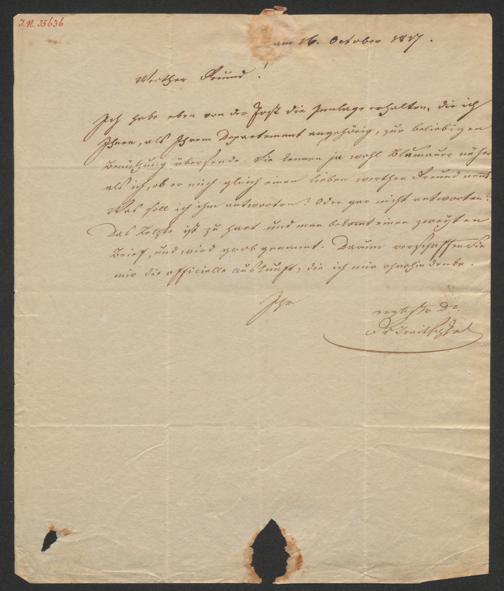 I.N. 33636
am 16. October 1817.
Werther Freund!
Ich habe eben von der Post die Innlage erhalten, die ich
Ihnen, als Ihrem Departement angehörig, zur beliebigen
Benützung übersende. Sie kennen ja wohl Blumauer näher
als ich, ob er mich gleich einen lieben werthen Freund nennt.
Was soll ich ihm antworten? Oder gar nicht antworten?
Das Letzte ist zu hart und man bekomt einen zweyten
Brief, und wird grob genannt. Darum verschaffen Sie
mir die officielle Auskunft, die ich mir
Ihr